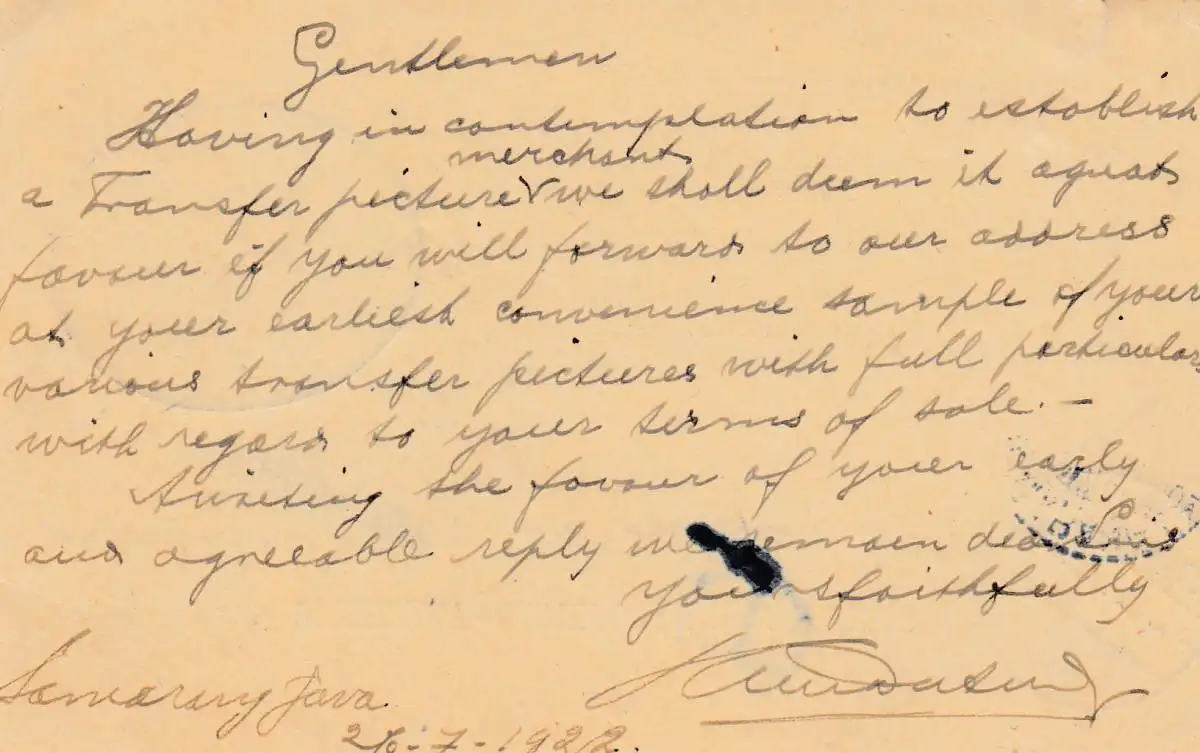 Gentlemen
Having in contemplation to establish
merchant
a Transfer picture we shall deem it a great
favour if you will forward to our address
at your earliest convenience sample of your
various transfer pictures with full particulars
with regard to your terms of sale. —
Awaiting the favour of your early
and agreeable reply we remain dear Sirs
Yours faithfully
Samarang Java
26-7-1922.